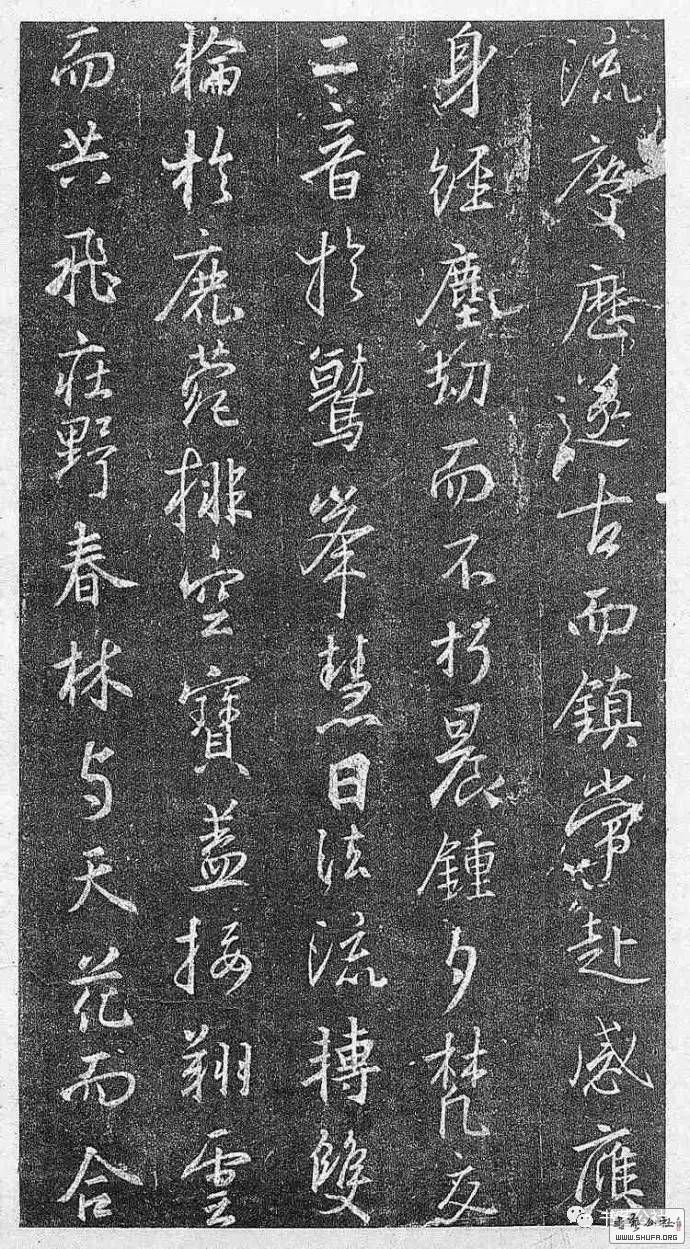 流慶歷遂古而鎮常赴感應
身經塵劫而不朽晨鍾夕梵交
二音於鷲峯慧日法流轉雙
輪於鹿菀排空寶蓋接翔雲
而共飛莊野春林与天花而合
书艺公社
WWW.SHUFA.ORG